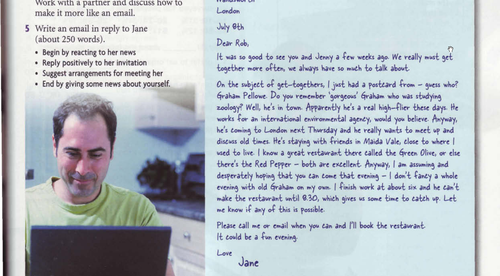 Work with a partner and discuss how to
make it more like an email.
5 Write an email in reply to Jane
(about 250 words).
• Begin by reacting to her news
• Reply positively to her invitation
• Suggest arrangements for meeting her
• End by giving some news about yourself.
London
July 8th
Dear Rob,
It was so good to see you and Jenny a few weeks ago. We really must get
together more often, we always have so much to talk about.
On the subject of get-togethers, I just had a postcard from – guess who?
Graham Pellowe. Do you remember 'gorgeous' Graham who was studying
zoology? Well, he's in town. Apparently he's a real high-flier these days. He
works for an international environmental agency, would you believe. Anyway,
he's coming to London next Thursday and he really wants to meet up and
discuss old times. He's staying with friends in Maida Vale, close to where I
used to live. I know a great restaurant there called the Green Olive, or else
there's the Red Pepper – both are excellent. Anyway, I am assuming and
desperately hoping that you can come that evening – I don't fancy a whole
evening with old Graham on my own. I finish work at about six and he can't
make the restaurant until 8.30, which gives us some time to catch up. Let
me know if any of this is possible.
Please call me or email when you can and I'll book the restaurant.
It could be a fun evening.
Love
Jane